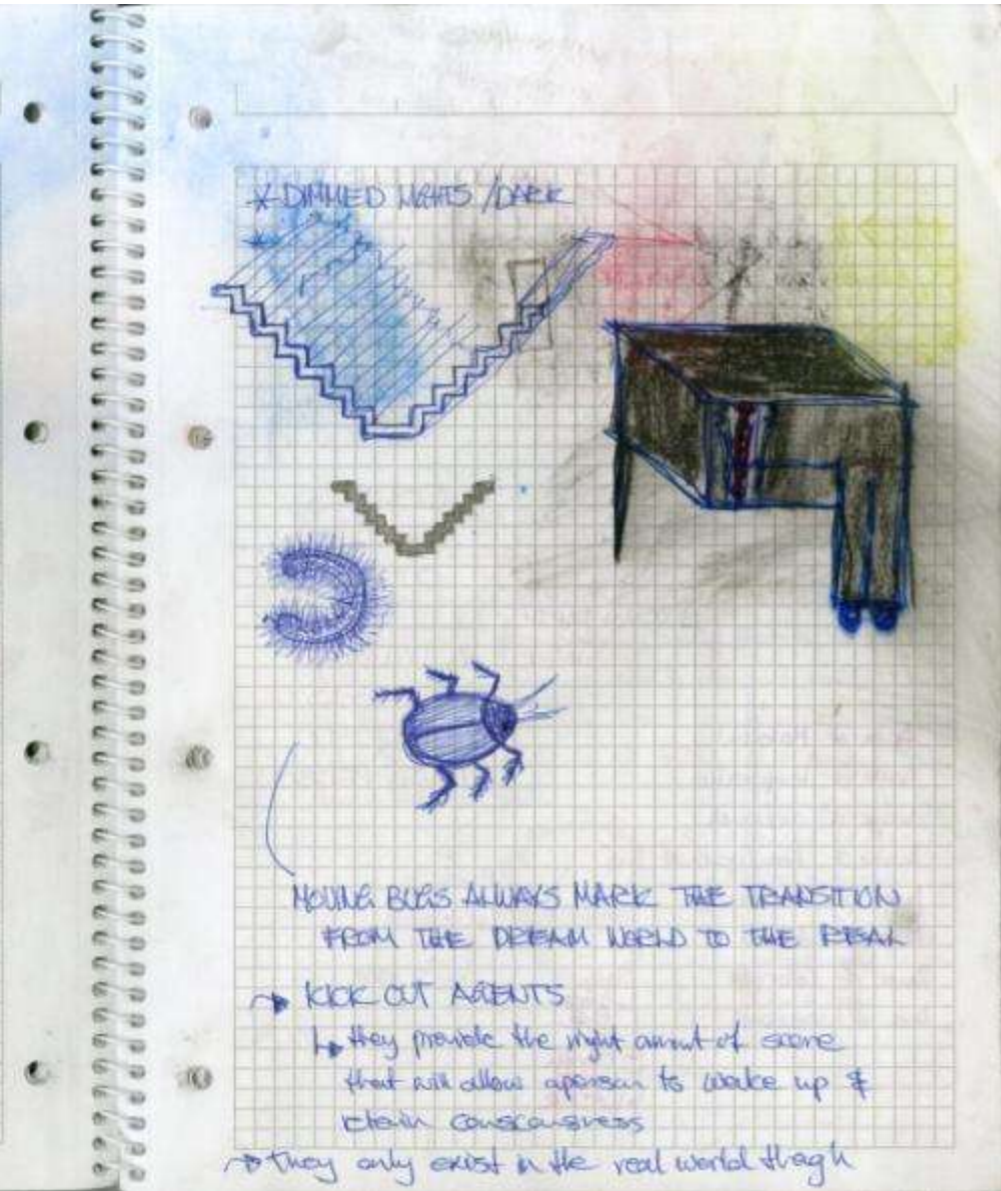 * DIMMED LIGHTS / DARK
MOVING BUGS ALWAYS MARK THE TRANSITION
FROM THE DREAM WORLD TO THE REAL
→ KICK OUT AGENTS
↳ they provide the right amunt of
that will allow a person to wake up &
consciousness
→ they only exist in the real world thogh